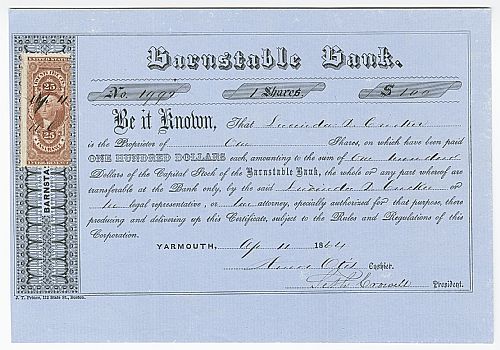 Barnstable Bank.
No. 1997 1 Shares, $ 100
Be it Known, That Lucinda
is the Proprietor of One Shares, on which have been paid
ONE HUNDRED DOLLARS each, amounting to the sum of One hundred
Dollars of the Capital Stock of the Barnstable Bank, the whole or any part whereof are
transferable at the Bank only, by the said Lucinda or
legal representative, or attorney, specially authorized for that purpose, there
producing and delivering up this Certificate, subject to the Rules and Regulations of this
Corporation.
YARMOUTH, Ap 11 1864
Amos Otis Cashier.
Seth Crowell President.
J. T. Prince, 112 State St., Boston.
25 25
BARNSTA